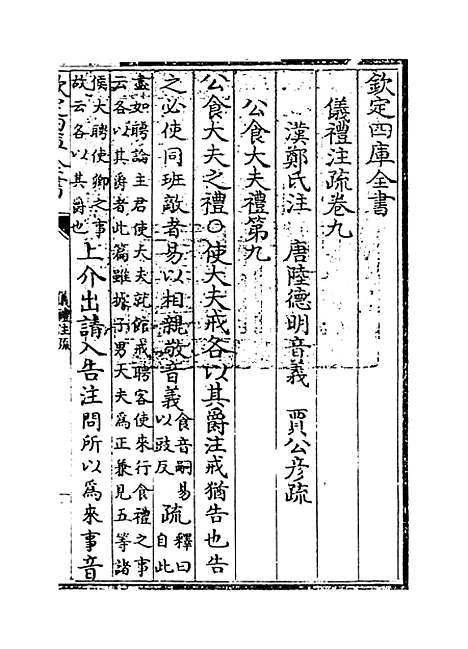 欽定四庫全書
儀禮注疏卷九
漢鄭氏注　唐陸德明音義　賈公彦疏
公食大夫禮第九
公食大夫之禮○使大夫戒各以其爵注戒猶告也告
之必使同班敵者易以相親敬音義食音嗣易以豉反疏釋曰自此
盡如聘論主君使大夫就館戒聘客使來行食禮之事
云各以其爵者此篇雖據子男大夫爲正兼見五等諸
侯大聘使卿之事故云各以其爵也上介出請入告注問所以爲來事音
欽定四庫全書
儀禮注疏